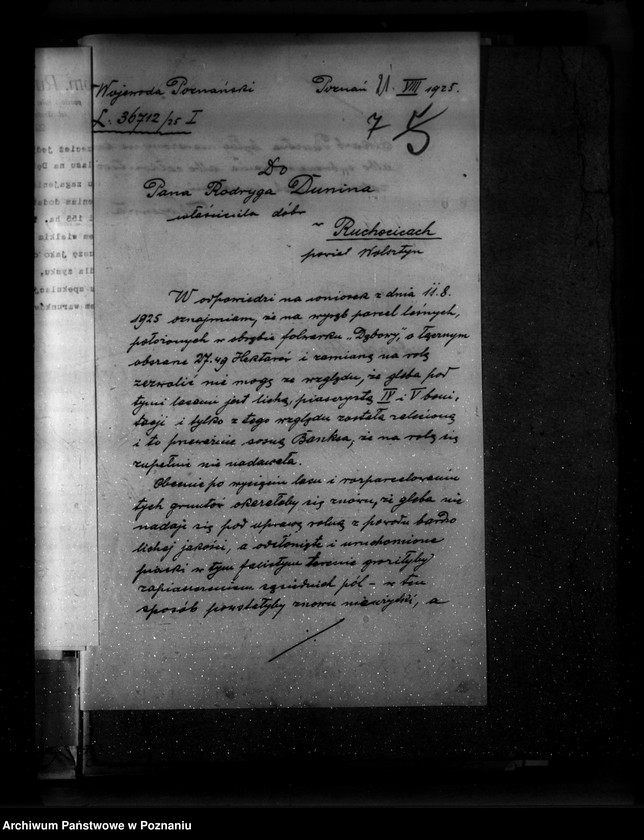 Wojewoda Poznański
Poznań VIII 1925.
L. 36712/25 I
7 5
Do
Pana Rodryga Dunina
właściciela dóbr
w Ruchocicach
powiat Wolsztyn
W odpowiedzi na wniosek z dnia 11.8.
1925 oznajmiam, że na wyrąb parcel leśnych,
położonych w obrębie folwarku "Dębowy", o łącznym
obszarze 27.49 Hektarów i zamianę na rolę
zezwolić nie mogę ze względu, że gleba pod
tymi lasami jest lichą, piaszczystą IV i V boni-
tacji i tylko z tego względu została zalesioną
i to przeważnie sosną Banksa, że na rolę się
zupełnie nie nadawała.
Obecnie po wycięciu lasu i rozparcelowaniu
tych gruntów okazałoby się znów, że gleba nie
nadaje się pod uprawę rolną z powodu bardzo
lichej jakości, a odsłonięte i uruchomione
piaski w tym falistym terenie groziłyby
zapiaszczeniem sąsiednich pól - w ten
sposób powstałyby znowu nieużytki, a
Archiwum Państwowe w Poznaniu